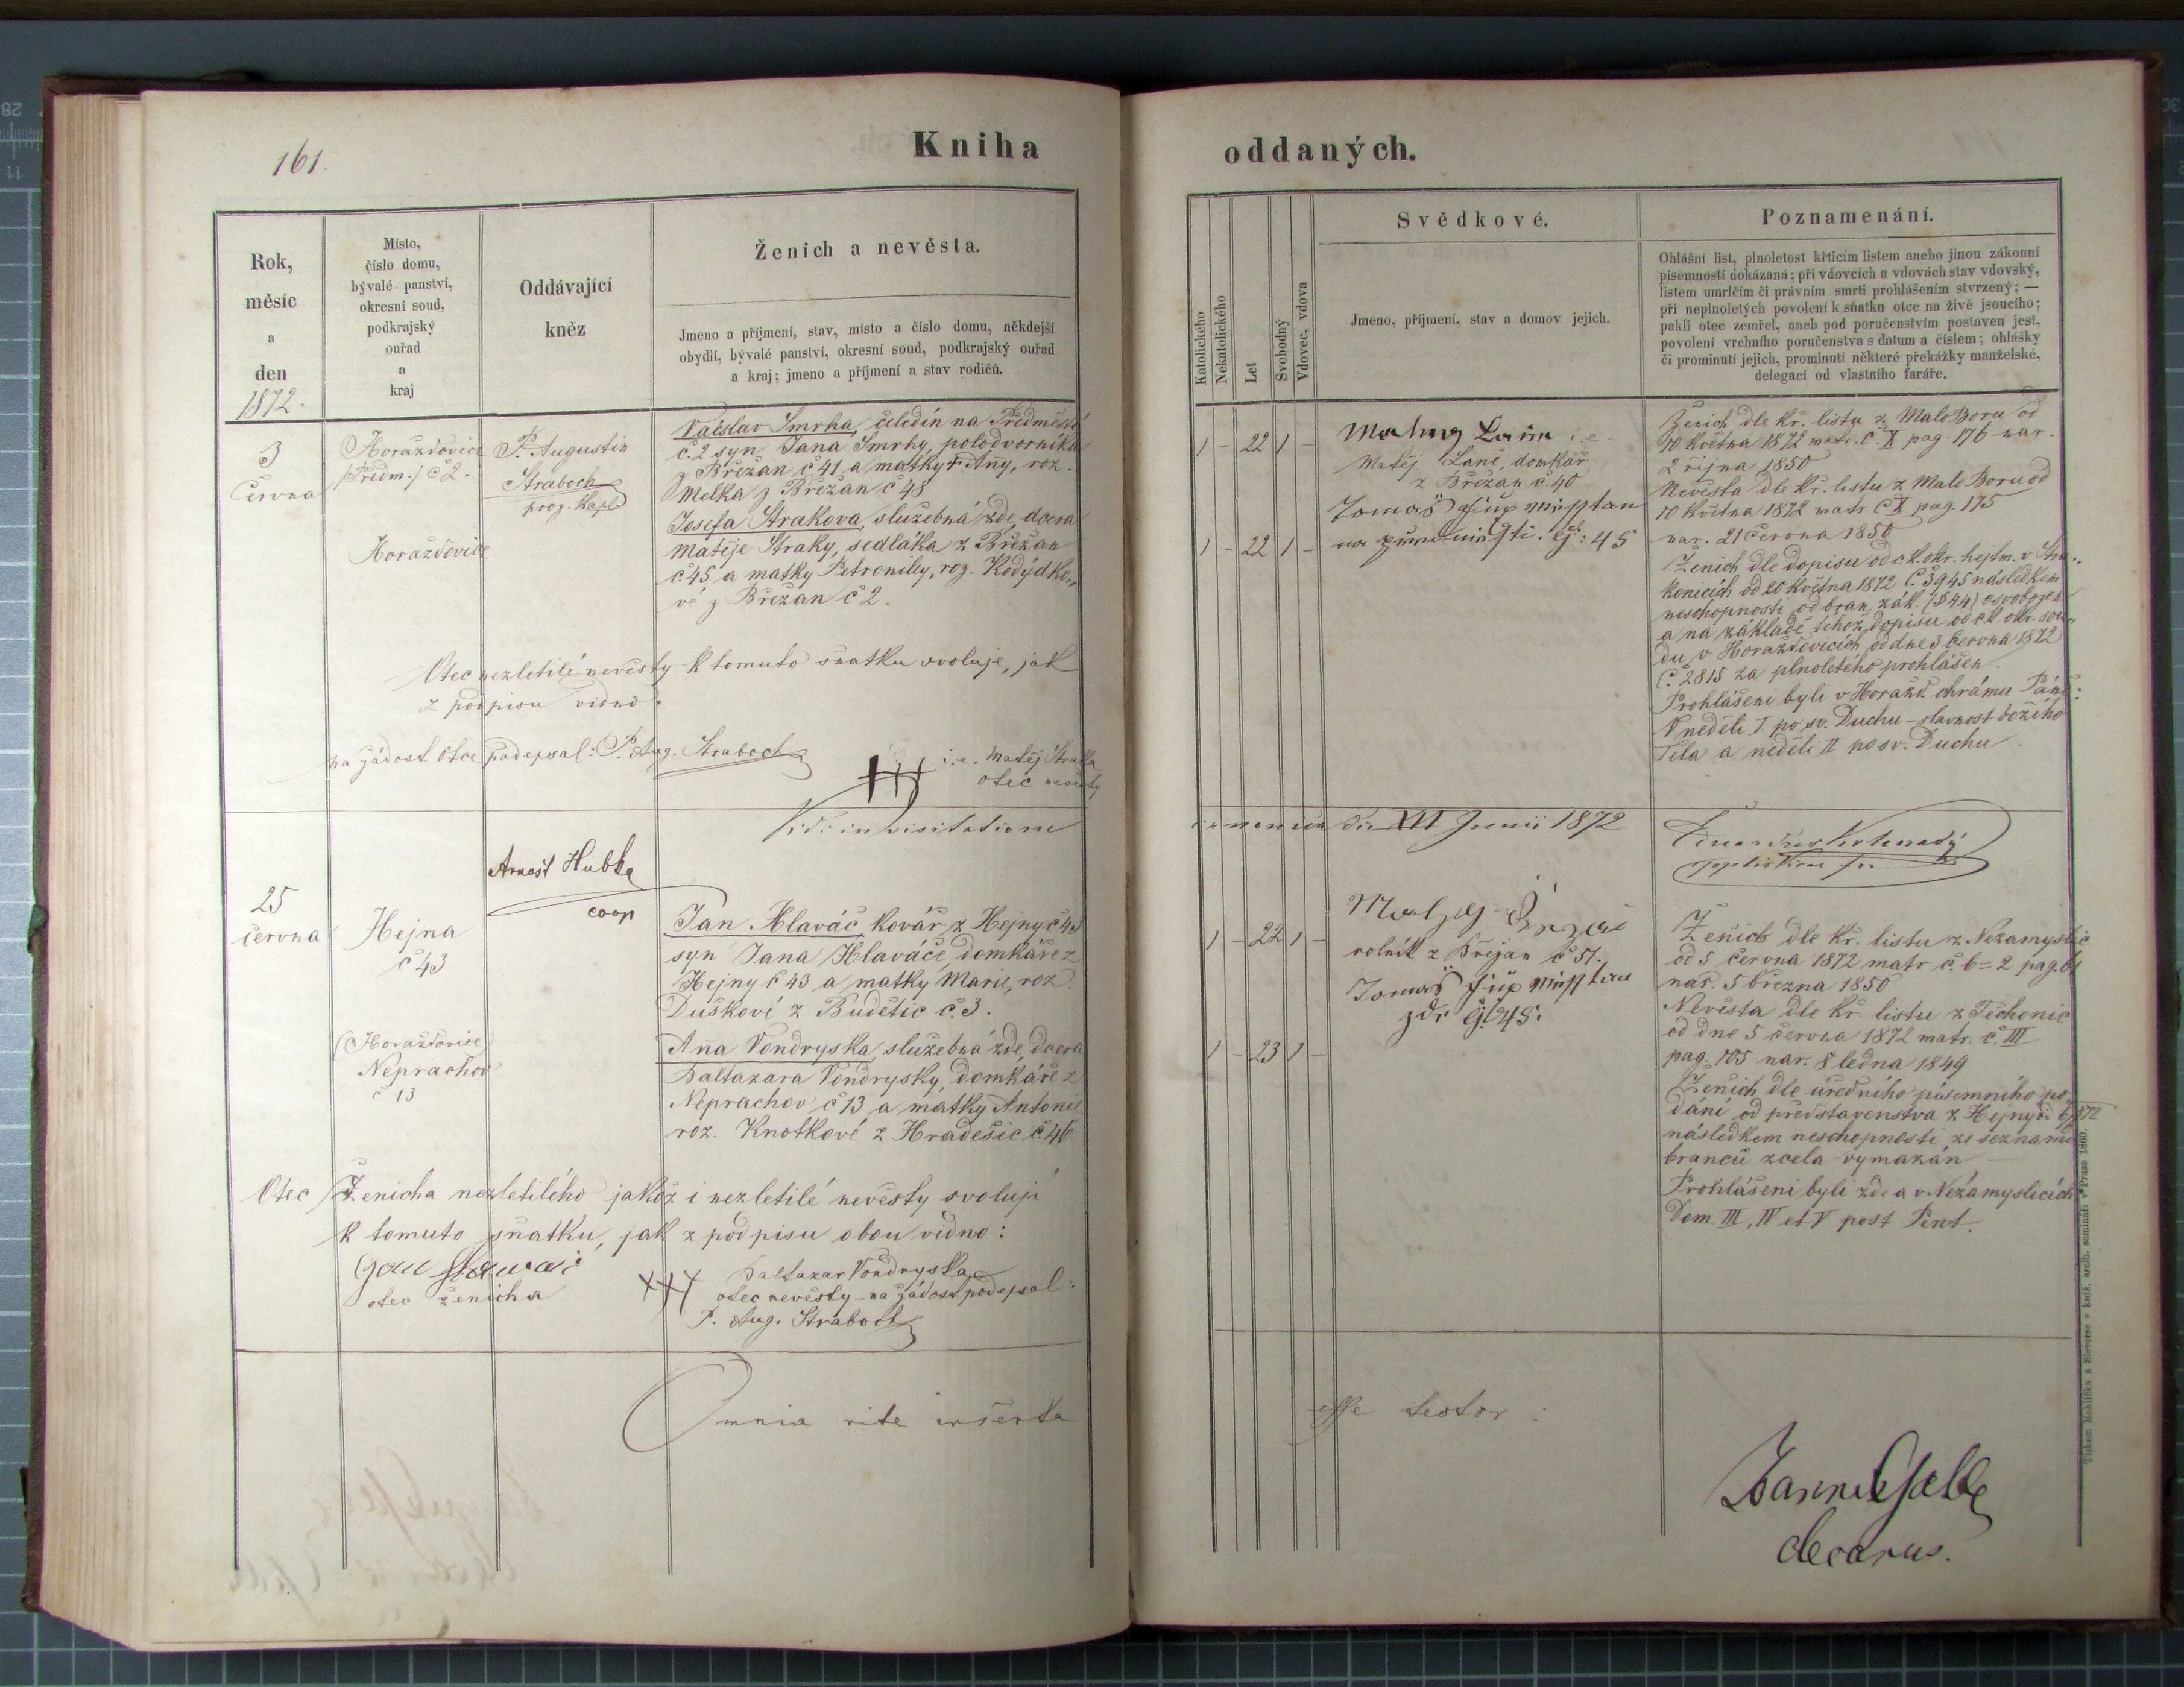 161.
Kniha
oddaných.
Rok,
měsíc
a
den
1872.
Místo,
číslo domu,
bývalé panství,
okresní soud,
podkrajský
ouřad
a
kraj
Oddávající
kněz
Ženich a nevěsta.
Jmeno a příjmení, stav, místo a číslo domu, někdejší
obydlí, bývalé panství, okresní soud, podkrajský ouřad
a kraj; jmeno a příjmení a stav rodičů.
Katolického
Nekatolického
Let
Svobodný
Vdovec, vdova
Svědkové.
Jmeno, příjmení, stav a domov jejich.
Poznamenání.
Ohlášní list, plnoletost křticím listem anebo jinou zákonní
písemností dokázaná; při vdovcích a vdovách stav vdovský,
listem umrlčím či právním smrti prohlášením stvrzený; —
při neplnoletých povolení k sňatku otce na živě jsoucího;
pakli otec zemřel, aneb pod poručenstvím postaven jest,
povolení vrchního poručenstva s datum a číslem; ohlášky
či prominutí jejich, prominutí některé překážky manželské,
delegací od vlastního faráře.
3
Června
Horažďovice
/Předm./ č 2.
Horažďovice
P. Augustin
Straboch
prog. Kapl
Václav Smrha, čeledín na Předměstí
č. 2 syn Jana Smrhy, polodvorníka
z Břežan č 41 a matky † Anny, roz.
Melka z Břežan č 48
Josefa Strakova, služebná zde, dcera
Matěje Straky, sedláka z Břežan
č 45 a matky Petronilly, roz. Kodýdko„
vé z Břežan č 2.
Otec nezletilé nevěsty k tomuto sňatku svoluje, jak
z podpisu vidno:
na žádost otce podepsal: P. Aug. Straboch
+++
i. e. Matěj Straka
otec nevěsty
1 - 22 1 -
1 - 22 1 -
i. e.
Matěj Lanč, domkář
z Břežan č. 40
Tomáš
45
Ženich dle kř. listu z Malo Boru od
10 května 1872 matr. č. X pag. 176 nar.
2 října 1850
Nevěsta dle kř. listu z Malo Boru od
10 května 1872 matr č X pag. 175
nar. 21 června 1850
Ženich dle dopisu od c k. okr. hejtm. v Stra„
konicích od 20 května 1872 č 3945 následkem
neschopnosti od bran. zák. (§ 44) osvobozen
a na základě téhož dopisu od c k. okr. sou„
du v Horažďovicích od dne 3 června 1872
č. 2815 za plnoletého prohlášen.
Prohlášeni byli v Horažď chrámu Páně:
V neděli I po sv. Duchu – slavnost božího
Těla a neděli II po sv. Duchu.
Vidi in visitatione
die XII Junii 1872
25
června
Hejna
č 43
(Horažďovice)
Neprachov
č 13
Arnošt Hubka
coop
Jan Hlaváč kovář z Hejny č 43
syn Jana Hlaváče, domkáře z
Hejny č 43 a matky Marie, roz.
Duškové z Budětic č. 3.
Anna Vondryska, služebná zde, dcera
Baltazara Vondrysky, domkáře z
Neprachov č 13 a matky Antonie
roz. Knotkové z Hradešic č. 46
Otec ženicha nezletilého jakož i nezletilé nevěsty svolují
k tomuto sňatku, jak z podpisu obou vidno:
Jan Hlawač
otec ženicha
+++ Baltazar Vondryska
otec nevěsty – na žádost podepsal:
P. Aug. Straboch
1 - 22 1 -
1 - 23 1 -
rolník z Břežan č 57.
Tomáš
45.
Ženich dle kř. listu z Nezamyslic
od 5 června 1872 matr č. 6 = 2 pag. 61
nar. 5 března 1850
Nevěsta dle kř. listu z Těchonic
od dne 5 června 1872 matr. č. III
pag. 105 nar. 8 ledna 1849
Ženich dle úředního písemního po„
dání od představenstva z Hejny
následkem neschopnosti ze seznamu
branců zcela vymazán
Prohlášeni byli zde a v Nezamyslicích
Dom. III, IV et V post Pent.
Omnia rite inserta
esse testor:
decanus.
Tiskem Rohlíčka a Sieverse v kníž. arcib. semináři v Praze 1860.